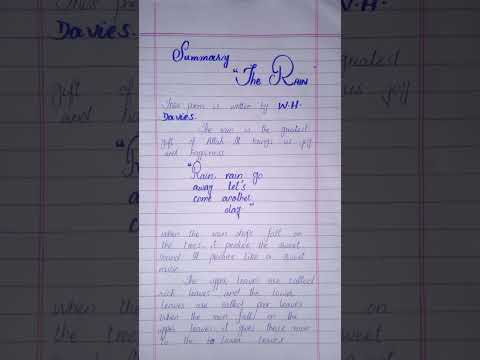 Summary
"The Rain"
This poem is written by W.H.
Davies.
The rain is the greatest
gift of Allah. It brings us joy
and happiness
"Rain, rain go
away let's
come another
day"
when the rain drops fall on
the trees, it produce the sweet
sound It produce like a sweet
music
The upper leaves are called
rich leaves and the lower
leaves are called poor leaves
When the rain fall on the
upper leaves, it gives these
to the lower leaves